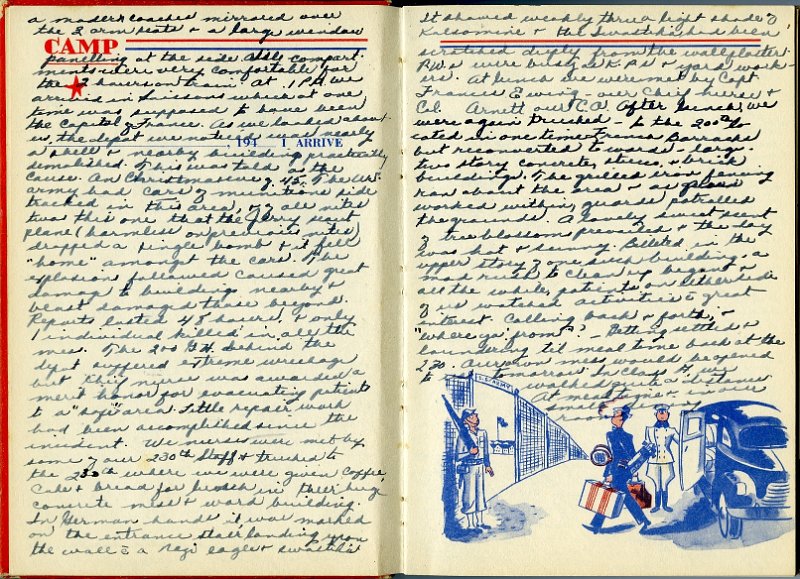 a modern coaches mirrored over
the 2 arm seats & a large window
CAMP
panelling at the side. All compart
ments were very comfortable for
the hours on train. At 1 PM we
arrived in Soissons which at one
time was supposed to have been
the Capitol of France. As we looked about
us, the depot we noticed was nearly
194 1 ARRIVE
a shell & nearby buildings practically
demolished. This was told as the
cause. On Christmas eve, 43. The U.S.
army had cars of munitions side
tracked in this area, & of all nites
twas this one that the Jerry scout
plane (harmless on previous nites)
dropped a single bomb & it fell
"home" amongst the cars. The
explosion followed caused great
damage to buildings nearby &
blast damaged those beyond.
Reports lasted 48 hours, & only
1 individual killed in all the
mess. The 200 G.H. behind the
depot suffered extreme wreckage
but chief nurse was awarded a
merit honor for evacuating patients
to a "safe" area. Little repair work
had been accomplished since the
incident. We nurses were met by
some of our 230th Staff & trucked to
the 230th where we were given Coffee,
Cake & bread for lunch in their huge
concrete mess & ward building.
In German hands it was marked
on the entrance stair landing upon
the wall a nazi eagle & swastika
It showed weakly thru a light shade of
Kalsomine & the Swastika had been
scratched deeply from the wall plaster.
P.W.s were busy as K.P.s & yard work-
ers. At lunch we were met by Capt.
Francis Ewing - our Chief nurse &
Col. Arnett our C.O. After lunch, we
were again trucked - to the 200th lo
cated in one time French Barracks
but reconverted to wards - large
two story concrete, stucco, & brick
buildings. The grilled iron fencing
ran about the area & as
worked within, guards patrolled
the grounds. A lovely sweet scent
of tree blossom prevailed & the day
was hot & sunny. Billeted in the
upper story of one such building, a
mad rush to clean up began &
all the while, patients on either side
of us watched activities great
interest. Calling back & forth, &
"where ya from?" - Getting settled &
laundering til meal time back at the
230. Our own mess would be opened
to us tomorrow. In class A, we
walked quite a distance
At meal time &
U.S. ARMY